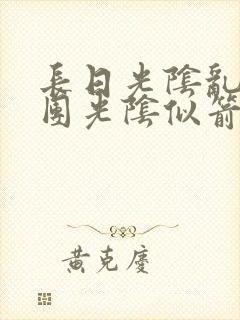 長日光陰亂
團光陰似箭
黃克慶